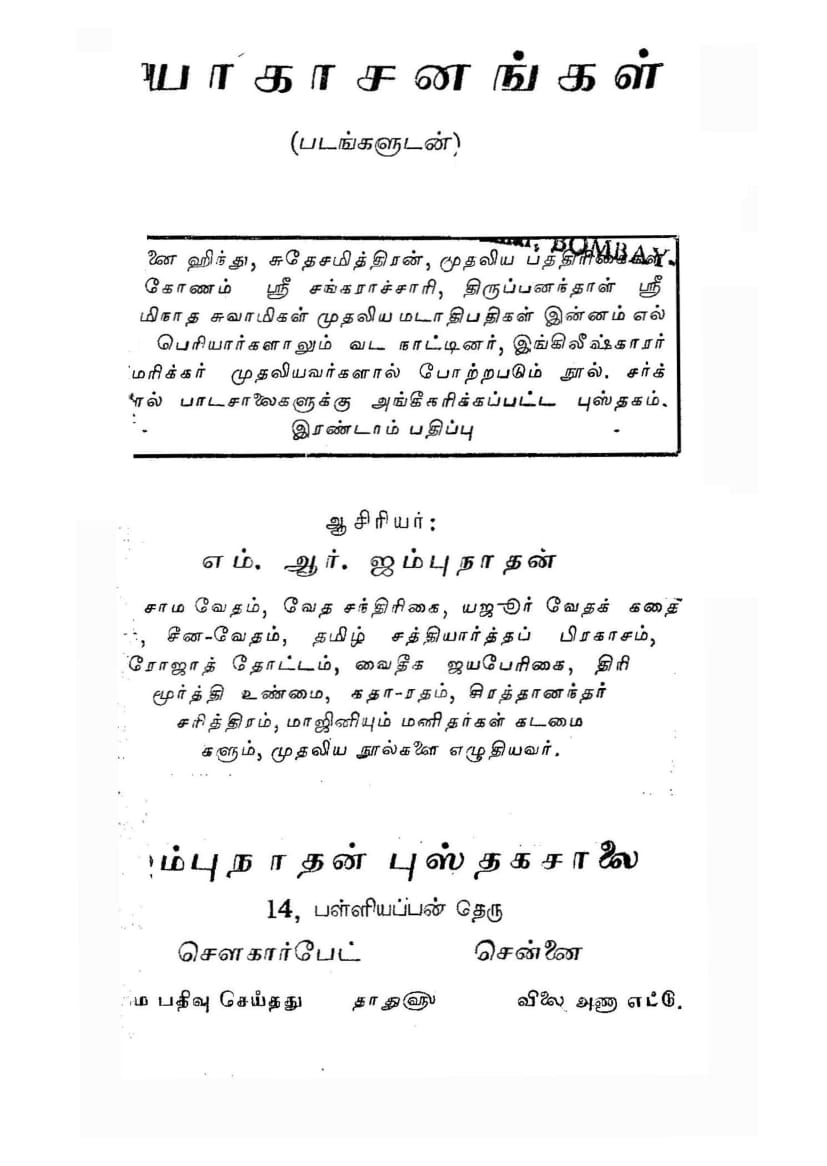 யாகாசனங்கள்
(படங்களுடன்)
BOMBAY.
ணை ஹிந்து, சுதேசமித்திரன், முதலிய பத்திரிகைகள்.
கோணம் ஸ்ரீ சங்கராச்சாரி, திருப்பனந்தாள் ஸ்ரீ
மிநாத சுவாமிகள் முதலிய மடாதிபதிகள் இன்னம் எல்
பெரியார்களாலும் வட நாட்டினர், இங்கிலீஷ்காரர்
மரிக்கர் முதலியவர்களால் போற்றபடும் நூல். சர்க்
ரல் பாடசாலைகளுக்கு அங்கீகரிக்கப்பட்ட புஸ்தகம்.
இரண்டாம் பதிப்பு
ஆசிரியர்:
எம். ஆர். ஜம்புநாதன்
சாம வேதம், வேத சந்திரிகை, யஜுர் வேதக் கதை
, சீன-வேதம், தமிழ் சத்தியார்த்தப் பிரகாசம்,
ரோஜாத் தோட்டம், வைதீக ஜயபேரிகை, திரி
மூர்த்தி உண்மை, கதா-ரதம், சிரத்தானந்தர்
சரித்திரம், மாஜினியும் மனிதர்கள் கடமை
களும், முதலிய நூல்களை எழுதியவர்.
ம்புநாதன் புஸ்தகசாலை
14, பள்ளியப்பன் தெரு
சௌகார்பேட் சென்னை
ம பதிவு செய்தது தாது௵ விலை அணா எட்டு.